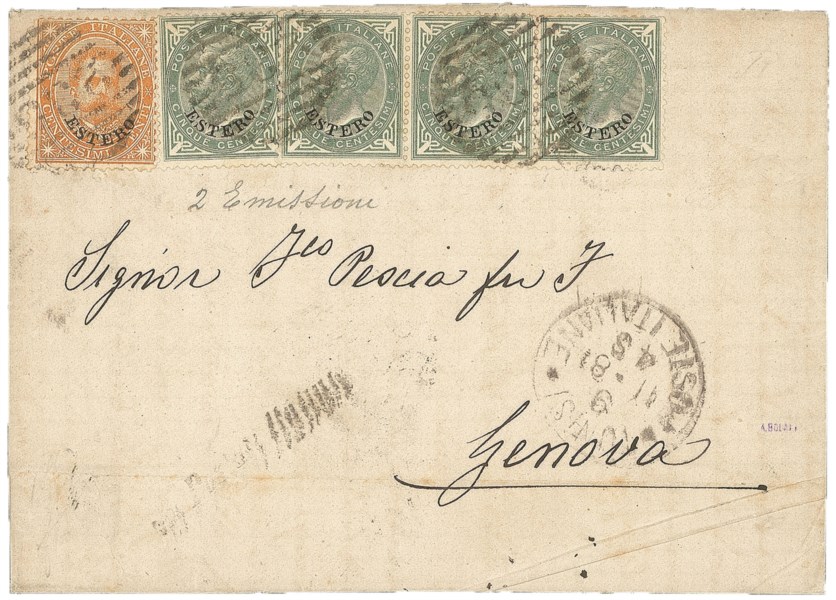 POSTE ITALIANE
ESTERO
CENTESIMI
POSTE ITALIANE
ESTERO
CINQUE CENTESIMI
POSTE ITALIANE
ESTERO
CINQUE CENTESIMI
POSTE ITALIANE
ESTERO
CINQUE CENTESIMI
POSTE ITALIANE
ESTERO
CINQUE CENTESIMI
2 Emissioni
Signor Fco Pescia fu F
POSTE ITALIANE
Genova